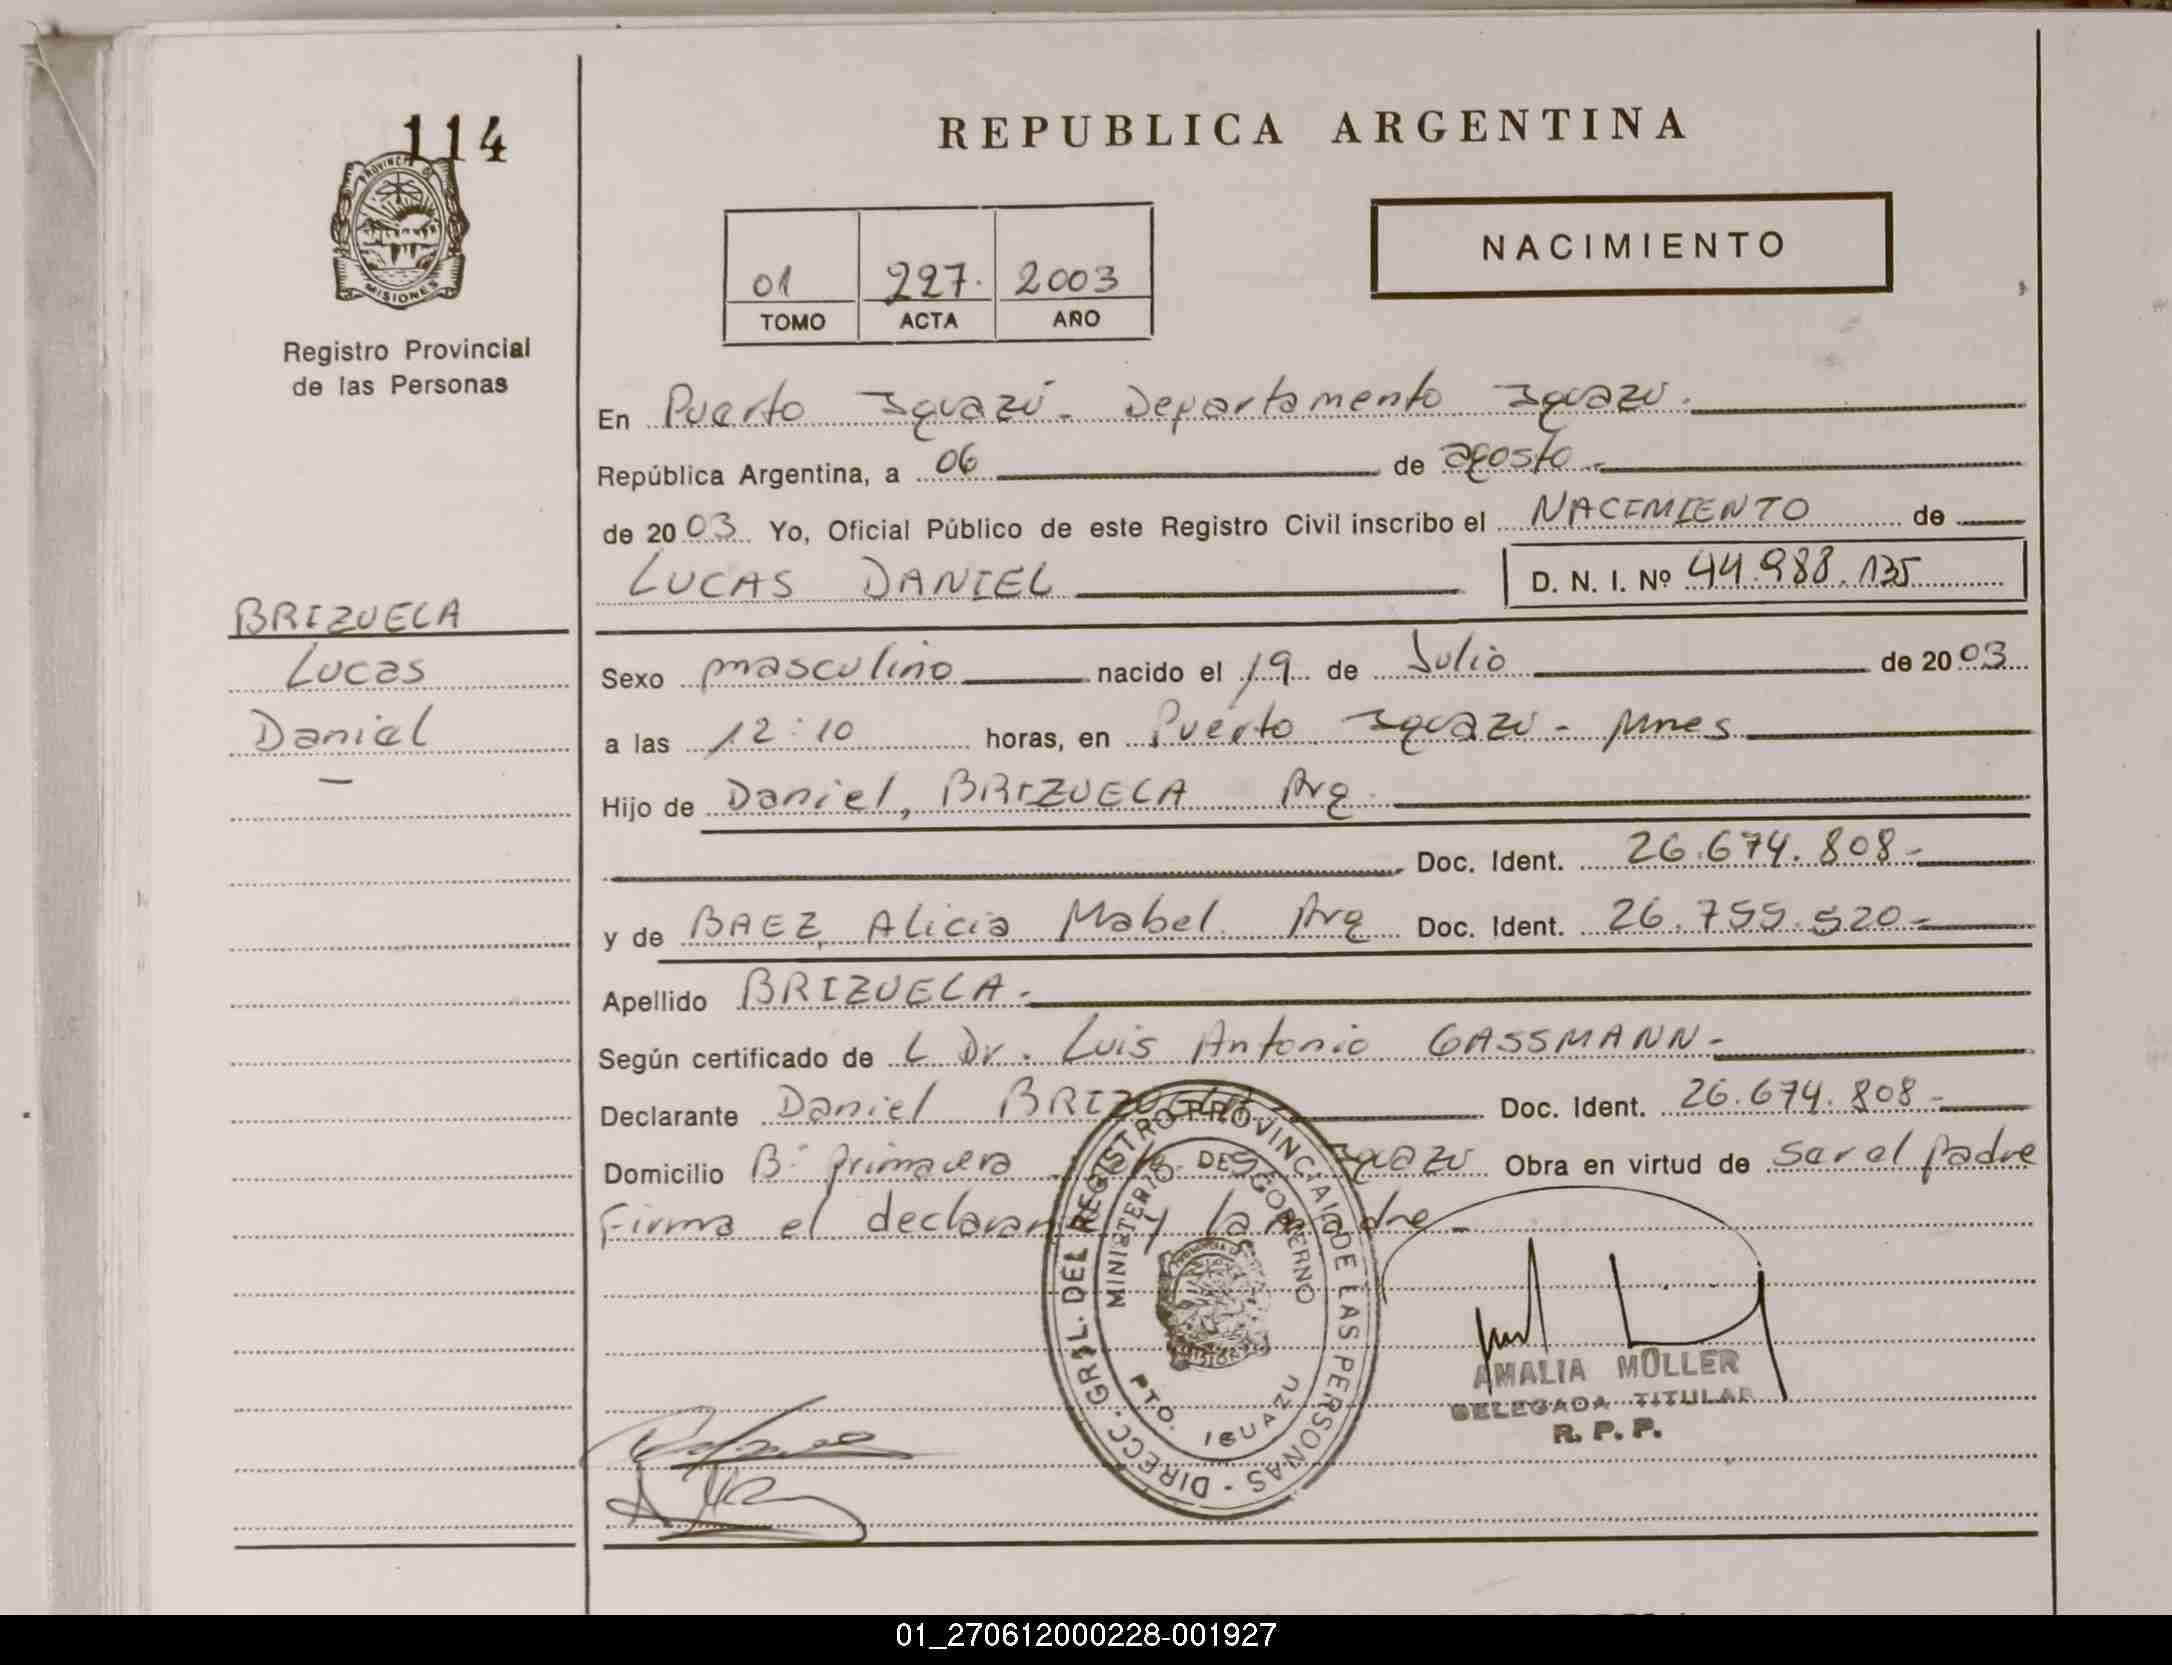 114
PROVINCIA DE
MISIONES
Registro Provincial
de las Personas
BRIZUELA
Lucas
Daniel
REPUBLICA ARGENTINA
NACIMIENTO
01 227. 2003
TOMO ACTA AÑO
En Puerto Iguazú. Departamento Iguazú.
República Argentina, a 06 de agosto
de 2003 Yo, Oficial Público de este Registro Civil inscribo el NACIMIENTO de
LUCAS DANIEL D. N. I. Nº 44.988.135
Sexo masculino nacido el 19 de Julio de 2003
a las 12:10 horas, en Puerto Iguazú - Mnes
Hijo de Daniel, BRIZUELA Arg.
Doc. Ident. 26.674.808-
y de BAEZ, Alicia Mabel. Arg Doc. Ident. 26.755.520-
Apellido BRIZUELA-
Según certificado de L Dr. Luis Antonio GASSMANN-
Declarante Daniel BRIZUELA Doc. Ident. 26.674.808-
Domicilio Bº primavera Iguazú Obra en virtud de ser el padre
Firma el declarante y la madre-
DIRECC. GRAL. DEL REGISTRO PROVINCIAL DE LAS PERSONAS -
MINISTERIO DE GOBIERNO
PTO. IGUAZU
AMALIA MULLER
DELEGADA TITULAR
R. P. P.
01_270612000228-001927